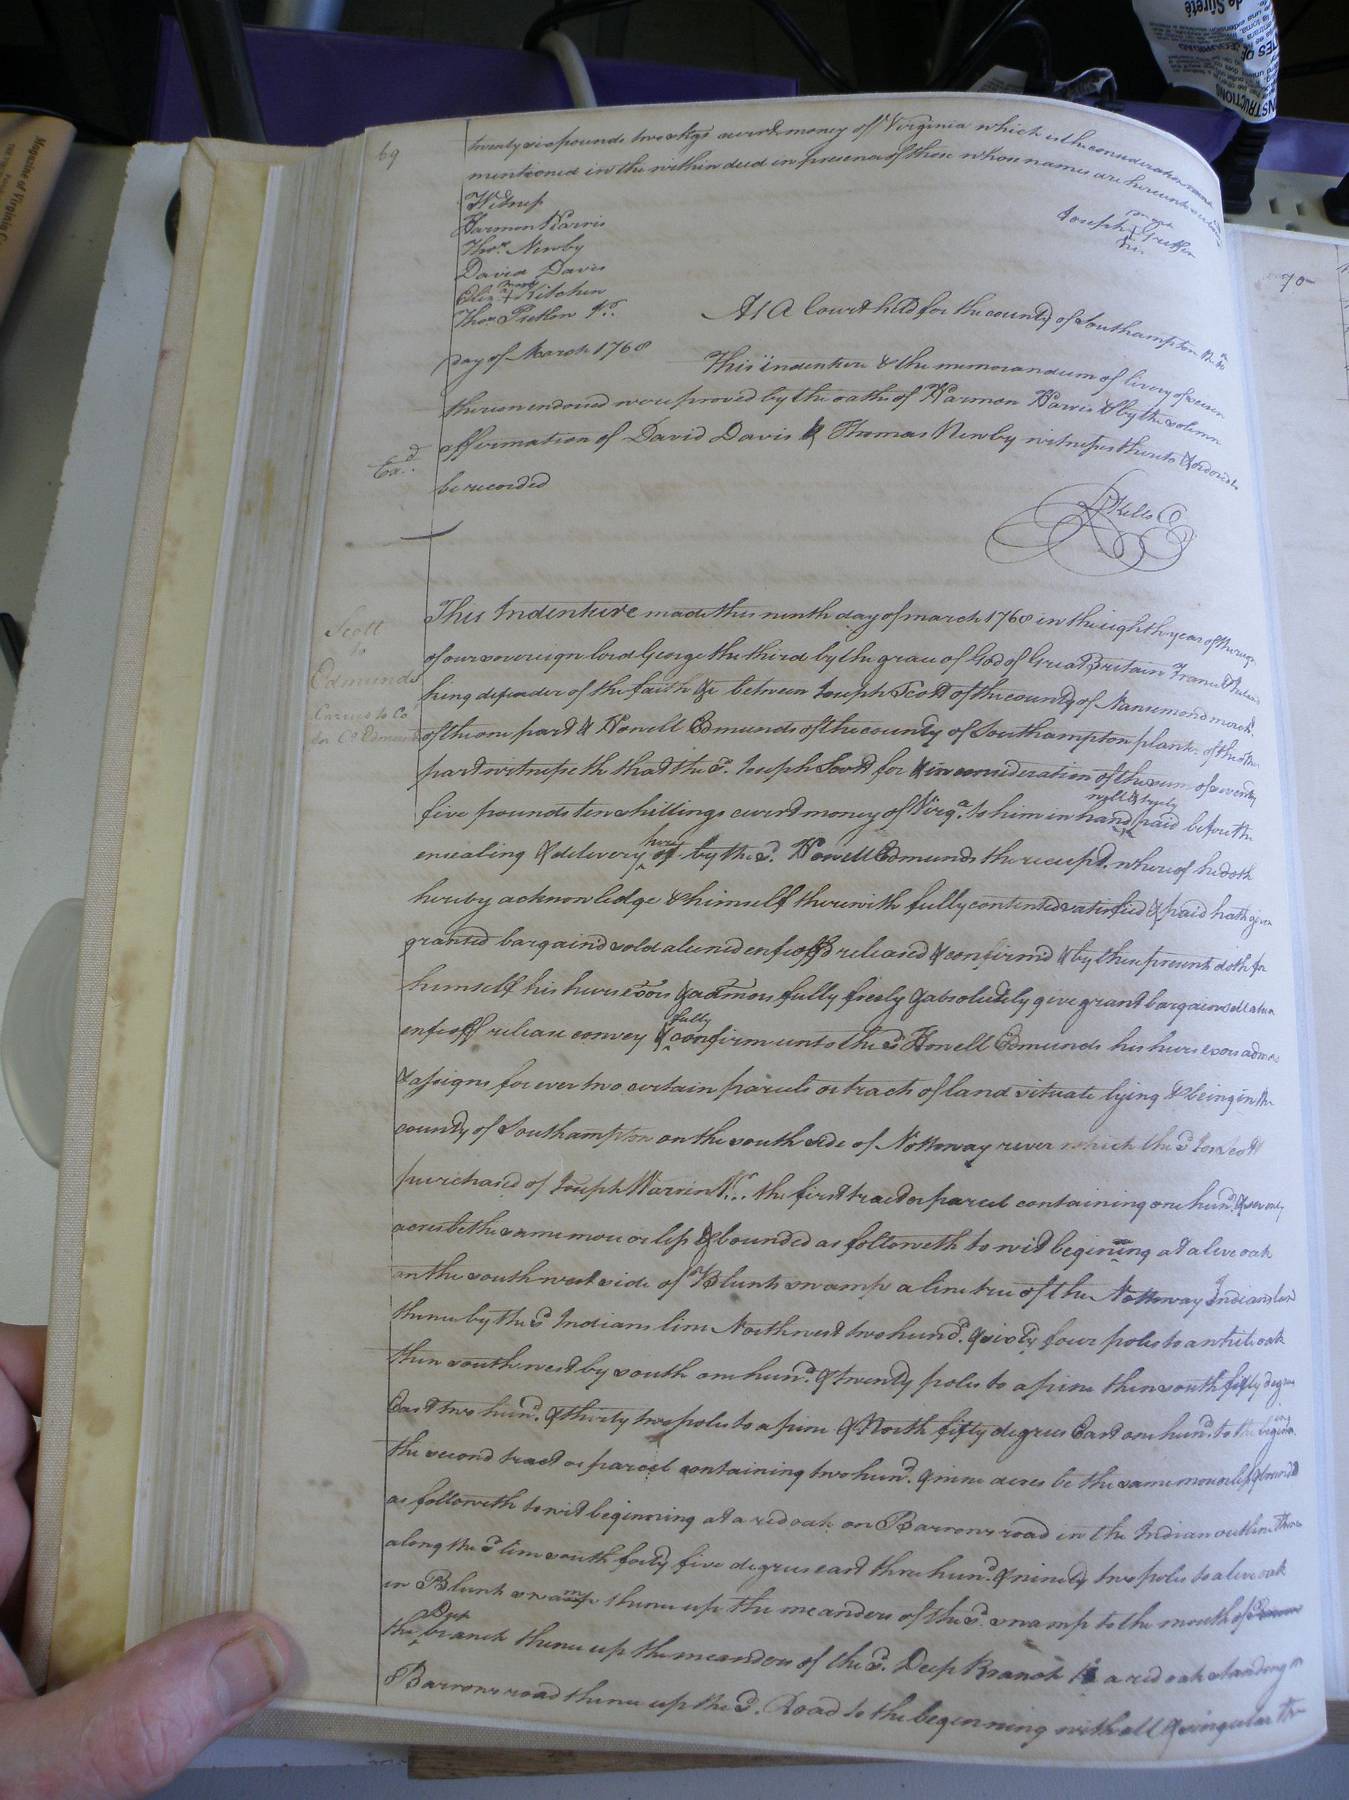 69
twenty six pounds two shgs currt money of Virginia which is the consideration
mentioned in the within deed in presence of those whose names are hereunto
Witness
Harmon Harris
Thos. Newby
David Davis
mark
Eliz + Kitchen
Thos
Joseph
his
At A Court held for the county of Southampton the
day of March 1768
This indenture & the memorandum of livery of seisen
thereon endorsed were proved by the oath of Harmon Harris & by the solemn
affirmation of David Davis & Thomas Newby witnesses thereto & ordered to
Exd.
be recorded
R Kello C
Scott
to
Edmunds
This Indenture made this ninth day of march 1768 in the eighth year of the reign
of our sovereign lord George the third by the grace of God of Great Britain France & Ireland
king defender of the faith &c between Joseph Scott of the county of Nansemond merch.
of the one part & Howell Edmunds of the county of Southampton planter of the other
part witnesseth that the sd. Joseph Scott for & in consideration of the sum of seventy
well & truly
five pounds ten shillings currt money of Virga. to him in hand paid before the
here
ensealing & delivery of by the sd. Howell Edmunds the receipt. whereof he doth
hereby acknowledge & himself therewith fully contented satisfied & paid hath given
granted bargaind sold aliened enfeoffd released & confirmd & by these presents doth for
himself his heirs exors & admors fully freely & absolutely give grant bargain sell alien
fully
enfeoff release convey & confirm unto the sd Howell Edmunds his heirs exors admors
& assigns for ever two certain parcels or tracts of land situate lying & being in the
county of Southampton on the south side of Nottoway river which the sd Jos Scott
purchased of Joseph Warren the first tract or parcel containing one hund. & seventy
acres be the same more or less & bounded as followeth to wit begining at a live oak
on the south west side of Blunts swamp a line tree of the Nottoway Indians land
thence by the sd Indians line North west two hund. & sixty four poles to a white oak
then south west by south one hund. & twenty poles to a pine then south fifty degrees
East two hund. & thirty two poles to a pine & North fifty degrees East one hund. to the begining
the second tract or parcel containing two hund. & nine acres be the same more or less & bounded
as followeth to wit beginning at a red oak on Barrons road in the Indian outline thence
along the sd line south forty five degrees east three hund. & ninety two poles to a live oak
in Blunts swamp thence up the meanders of the sd. swamp to the mouth of
Deep
the branch thence up the meanders of the sd. Deep Branch to a red oak standing in
Barrons road thence up the sd. Road to the beginning with all & singular the
70
Magazine of Virginia
INSTRUCTIONS
de Sûreté